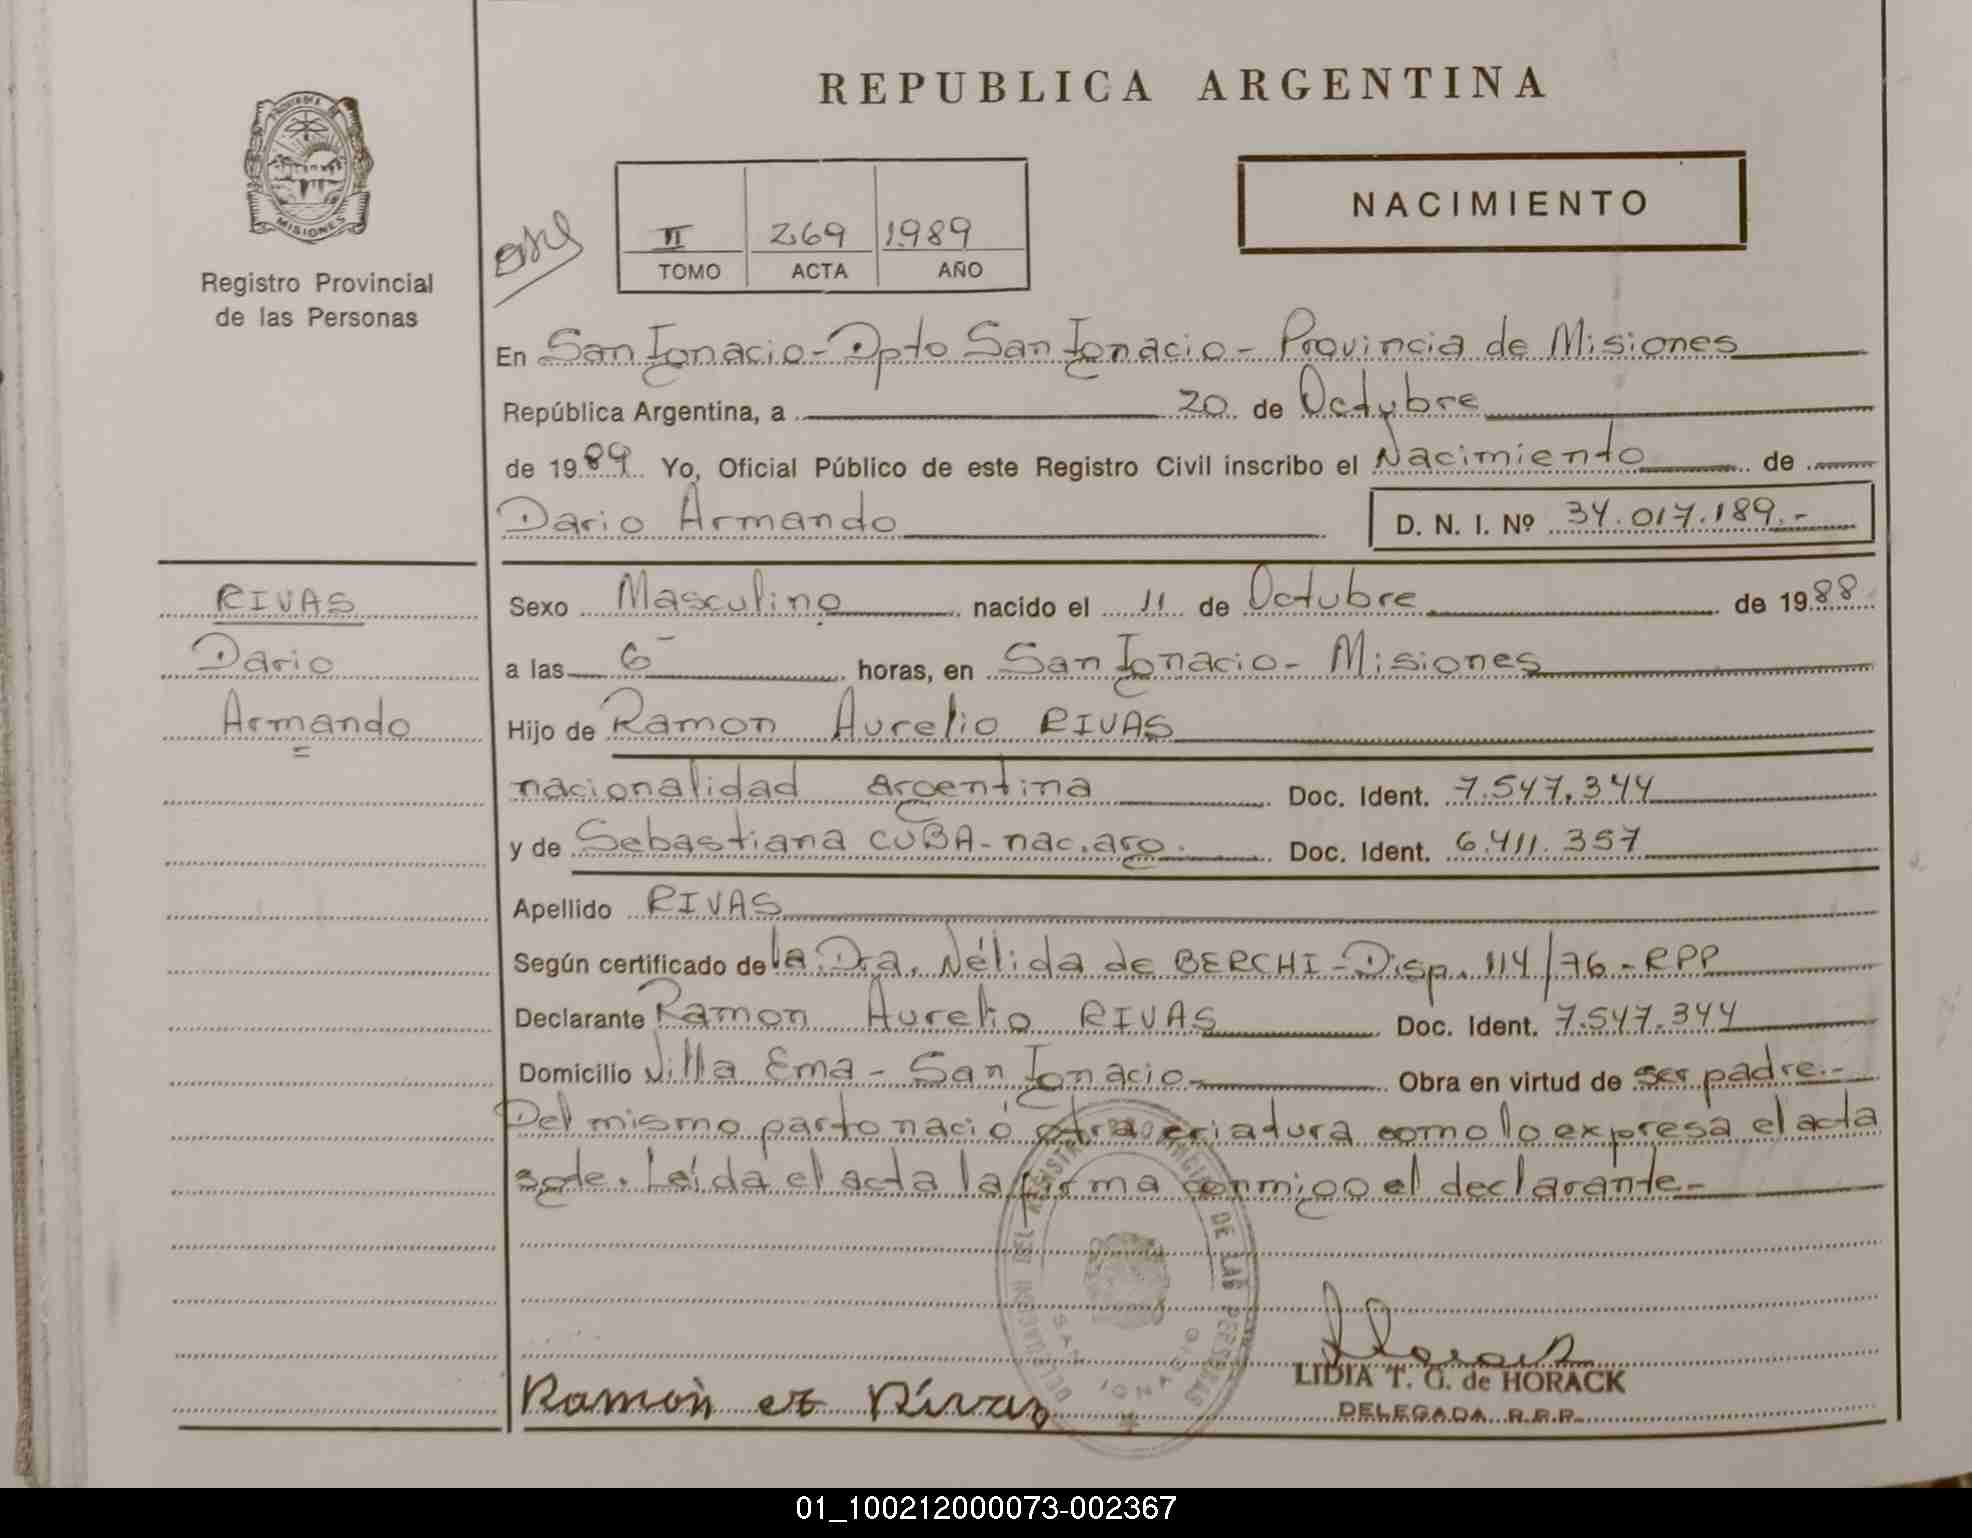 REPUBLICA ARGENTINA
PROVINCIA DE
MISIONES
Registro Provincial
de las Personas
II 269 1989
TOMO ACTA AÑO
NACIMIENTO
En San Ignacio - Dpto San Ignacio - Provincia de Misiones
República Argentina, a 20 de Octubre
de 1989 Yo, Oficial Público de este Registro Civil inscribo el Nacimiento de
Dario Armando D. N. I. Nº 34.017.189.-
RIVAS
Dario
Armando
Sexo Masculino nacido el 11 de Octubre de 1988
a las 6 horas, en San Ignacio - Misiones
Hijo de Ramon Aurelio RIVAS
nacionalidad argentina Doc. Ident. 7.547.344
y de Sebastiana CUBA - nac. arg. Doc. Ident. 6.411.357
Apellido RIVAS
Según certificado de la Dra. Nélida de BERCHI - Disp. 114/76 - RPP
Declarante Ramon Aurelio RIVAS Doc. Ident. 7.547.344
Domicilio Villa Ema - San Ignacio - Obra en virtud de ser padre.-
Del mismo parto nació otra criatura como lo expresa el acta
sgte. Leída el acta la firma conmigo el declarante -
DELEGACION DEL REGISTRO PROVINCIAL DE LAS PERSONAS
SAN IGNACIO
Ramon Rivas
LIDIA T. G. de HORACK
DELEGADA R.P.P.
01_100212000073-002367